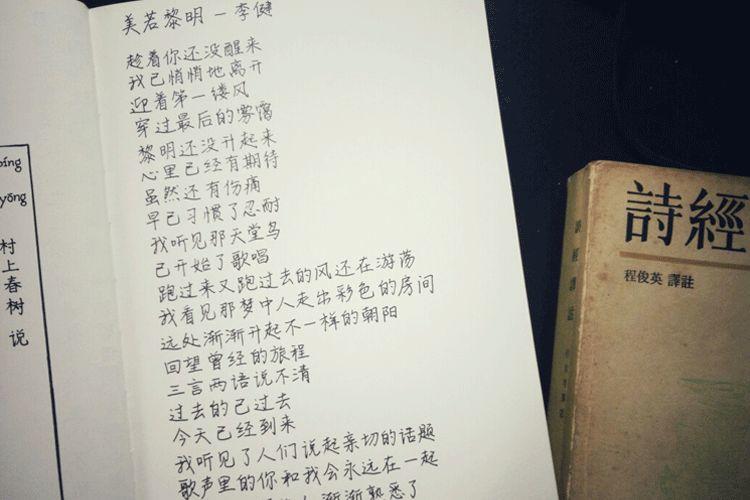 bíng
yōng
村上春树说
美若黎明 - 李健
趁着你还没醒来
我已悄悄地离开
迎着第一缕风
穿过最后的雾霭
黎明还没升起来
心里已经有期待
虽然还有伤痛
早已习惯了忍耐
我听见那天堂鸟
已开始了歌唱
跑过来又跑过去的风还在游荡
我看见那梦中人走出彩色的房间
远处渐渐升起不一样的朝阳
回望曾经的旅程
三言两语说不清
过去的已过去
今天已经到来
我听见了人们说起亲切的话题
歌声里的你和我会永远在一起
渐渐熟悉了
詩經
程俊英 譯註
詩經譯註